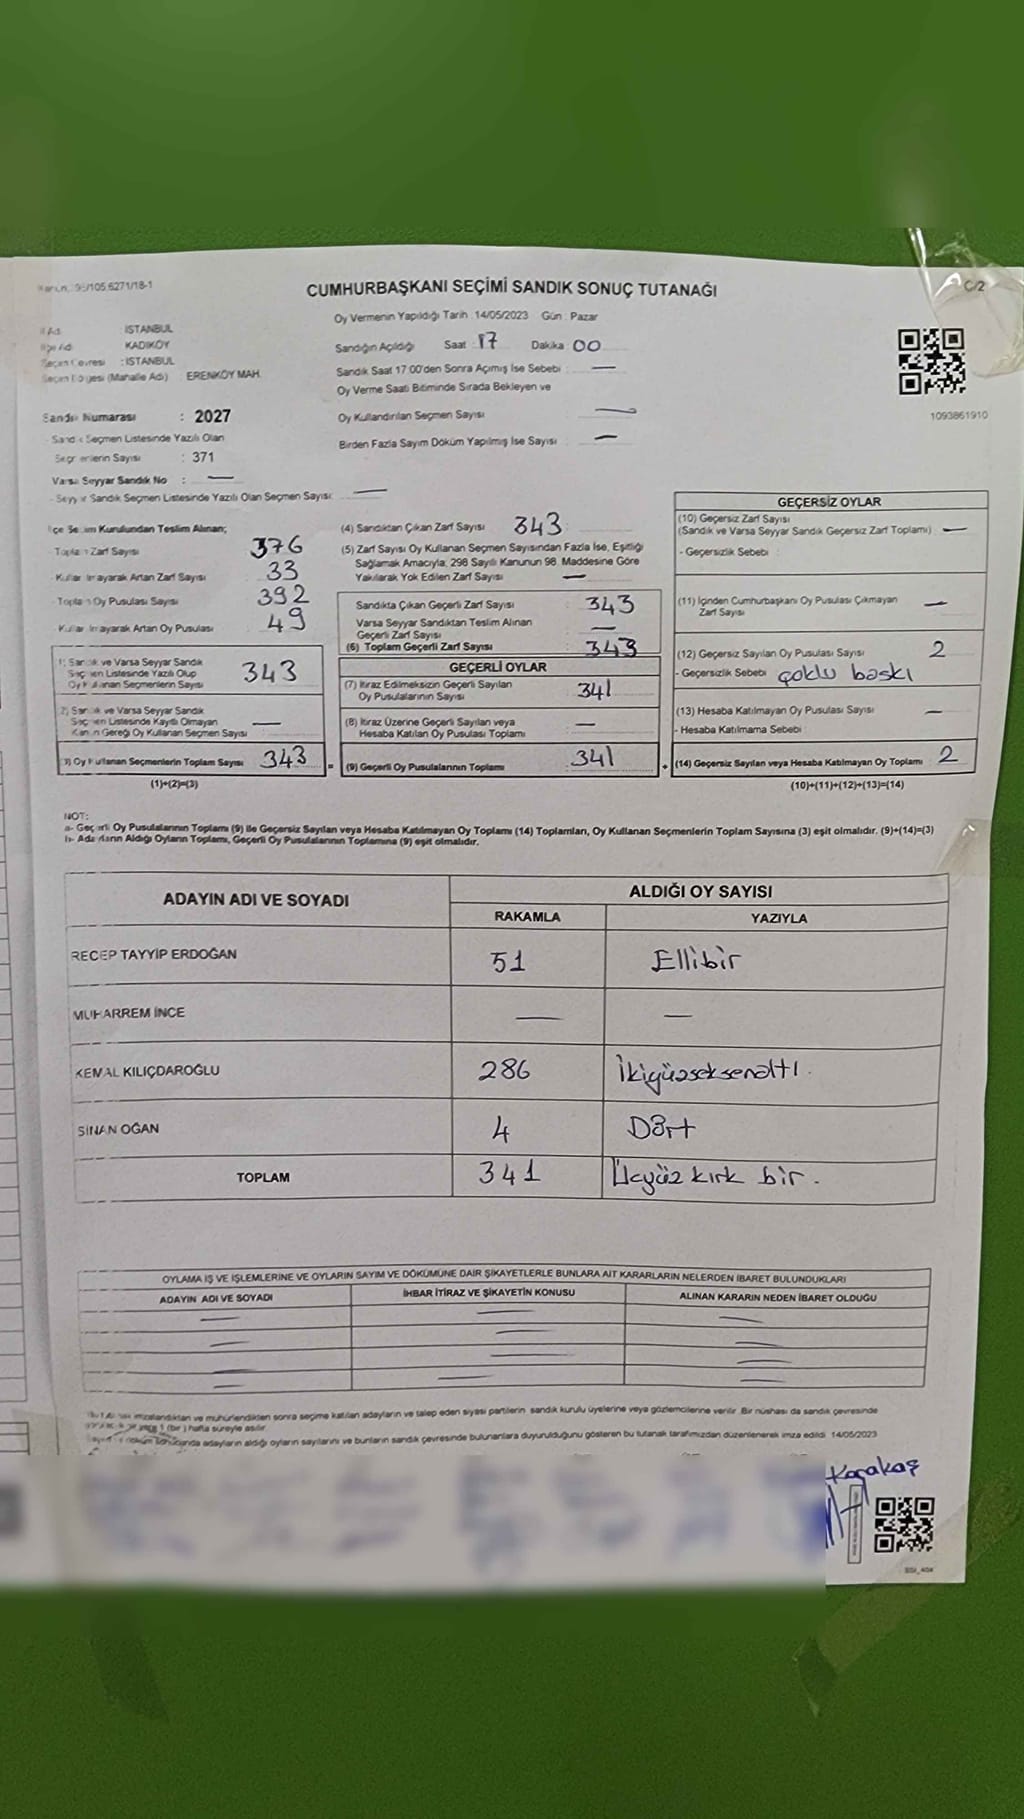 CUMHURBAŞKANI SEÇİMİ SANDIK SONUÇ TUTANAĞI
C/2
Oy Vermenin Yapıldığı Tarih : 14/05/2023 Gün : Pazar
İSTANBUL
KADIKÖY
: İSTANBUL
(Mahalle Adı) : ERENKÖY MAH.
Sandığın Açıldığı Saat : 17 Dakika : 00
Sandık Saat 17:00'den Sonra Açımış İse Sebebi : —
Oy Verme Saati Bitiminde Sırada Bekleyen ve
Oy Kullandırılan Seçmen Sayısı —
Birden Fazla Sayım Döküm Yapılmış İse Sayısı : —
1093861910
Sandık Numarası : 2027
- Sandık Seçmen Listesinde Yazılı Olan
Seçmenlerin Sayısı : 371
Varsa Seyyar Sandık No : —
- Seyyar Sandık Seçmen Listesinde Yazılı Olan Seçmen Sayısı: —
İlçe Seçim Kurulundan Teslim Alınan;
Toplam Zarf Sayısı 376
Kullanılmayarak Artan Zarf Sayısı 33
Toplam Oy Pusulası Sayısı 392
Kullanılmayarak Artan Oy Pusulası 49
1) Sandık ve Varsa Seyyar Sandık
Seçmen Listesinde Yazılı Olup
Oy Kullanan Seçmenlerin Sayısı 343
2) Sandık ve Varsa Seyyar Sandık
Seçmen Listesinde Kayıtlı Olmayan
Kanun Gereği Oy Kullanan Seçmen Sayısı —
(3) Oy Kullanan Seçmenlerin Toplam Sayısı 343
(1)+(2)=(3)
(4) Sandıktan Çıkan Zarf Sayısı : 343
(5) Zarf Sayısı Oy Kullanan Seçmen Sayısından Fazla İse, Eşitliği
Sağlamak Amacıyla, 298 Sayılı Kanunun 98. Maddesine Göre
Yakılarak Yok Edilen Zarf Sayısı : —
Sandıkta Çıkan Geçerli Zarf Sayısı : 343
Varsa Seyyar Sandıktan Teslim Alınan
Geçerli Zarf Sayısı —
(6) Toplam Geçerli Zarf Sayısı : 343
GEÇERLİ OYLAR
(7) İtiraz Edilmeksizin Geçerli Sayılan
Oy Pusulalarının Sayısı : 341
(8) İtiraz Üzerine Geçerli Sayılan veya
Hesaba Katılan Oy Pusulası Toplamı —
= (9) Geçerli Oy Pusulalarının Toplamı : 341
GEÇERSİZ OYLAR
(10) Geçersiz Zarf Sayısı
(Sandık ve Varsa Seyyar Sandık Geçersiz Zarf Toplamı) : —
- Geçersizlik Sebebi :
(11) İçinden Cumhurbaşkanı Oy Pusulası Çıkmayan
Zarf Sayısı —
(12) Geçersiz Sayılan Oy Pusulası Sayısı : 2
- Geçersizlik Sebebi çoklu baskı
(13) Hesaba Katılmayan Oy Pusulası Sayısı : —
- Hesaba Katılmama Sebebi :
+ (14) Geçersiz Sayılan veya Hesaba Katılmayan Oy Toplamı : 2
(10)+(11)+(12)+(13)=(14)
NOT:
a- Geçerli Oy Pusulalarının Toplamı (9) ile Geçersiz Sayılan veya Hesaba Katılmayan Oy Toplamı (14) Toplamları, Oy Kullanan Seçmenlerin Toplam Sayısına (3) eşit olmalıdır. (9)+(14)=(3)
b- Adayların Aldığı Oyların Toplamı, Geçerli Oy Pusulalarının Toplamına (9) eşit olmalıdır.
ADAYIN ADI VE SOYADI
ALDIĞI OY SAYISI
RAKAMLA YAZIYLA
RECEP TAYYİP ERDOĞAN 51 Ellibir
MUHARREM İNCE — —
KEMAL KILIÇDAROĞLU 286 İkiyüzseksenaltı.
SİNAN OĞAN 4 Dört
TOPLAM 341 Üçyüz kırk bir.
OYLAMA İŞ VE İŞLEMLERİNE VE OYLARIN SAYIM VE DÖKÜMÜNE DAİR ŞİKAYETLERLE BUNLARA AİT KARARLARIN NELERDEN İBARET BULUNDUKLARI
ADAYIN ADI VE SOYADI İHBAR İTİRAZ VE ŞİKAYETİN KONUSU ALINAN KARARIN NEDEN İBARET OLDUĞU
— — —
— — —
— — —
— — —
imzalandıktan ve mühürlendikten sonra seçime katılan adayların ve talep eden siyasi partilerin sandık kurulu üyelerine veya gözlemcilerine verilir. Bir nüshası da sandık çevresinde
1 (bir) hafta süreyle asılır.
adayların aldığı oyların sayılarını ve bunların sandık çevresinde bulunanlara duyurulduğunu gösteren bu tutanak tarafımızdan düzenlenerek imza edildi. 14/05/2023
Karakaş